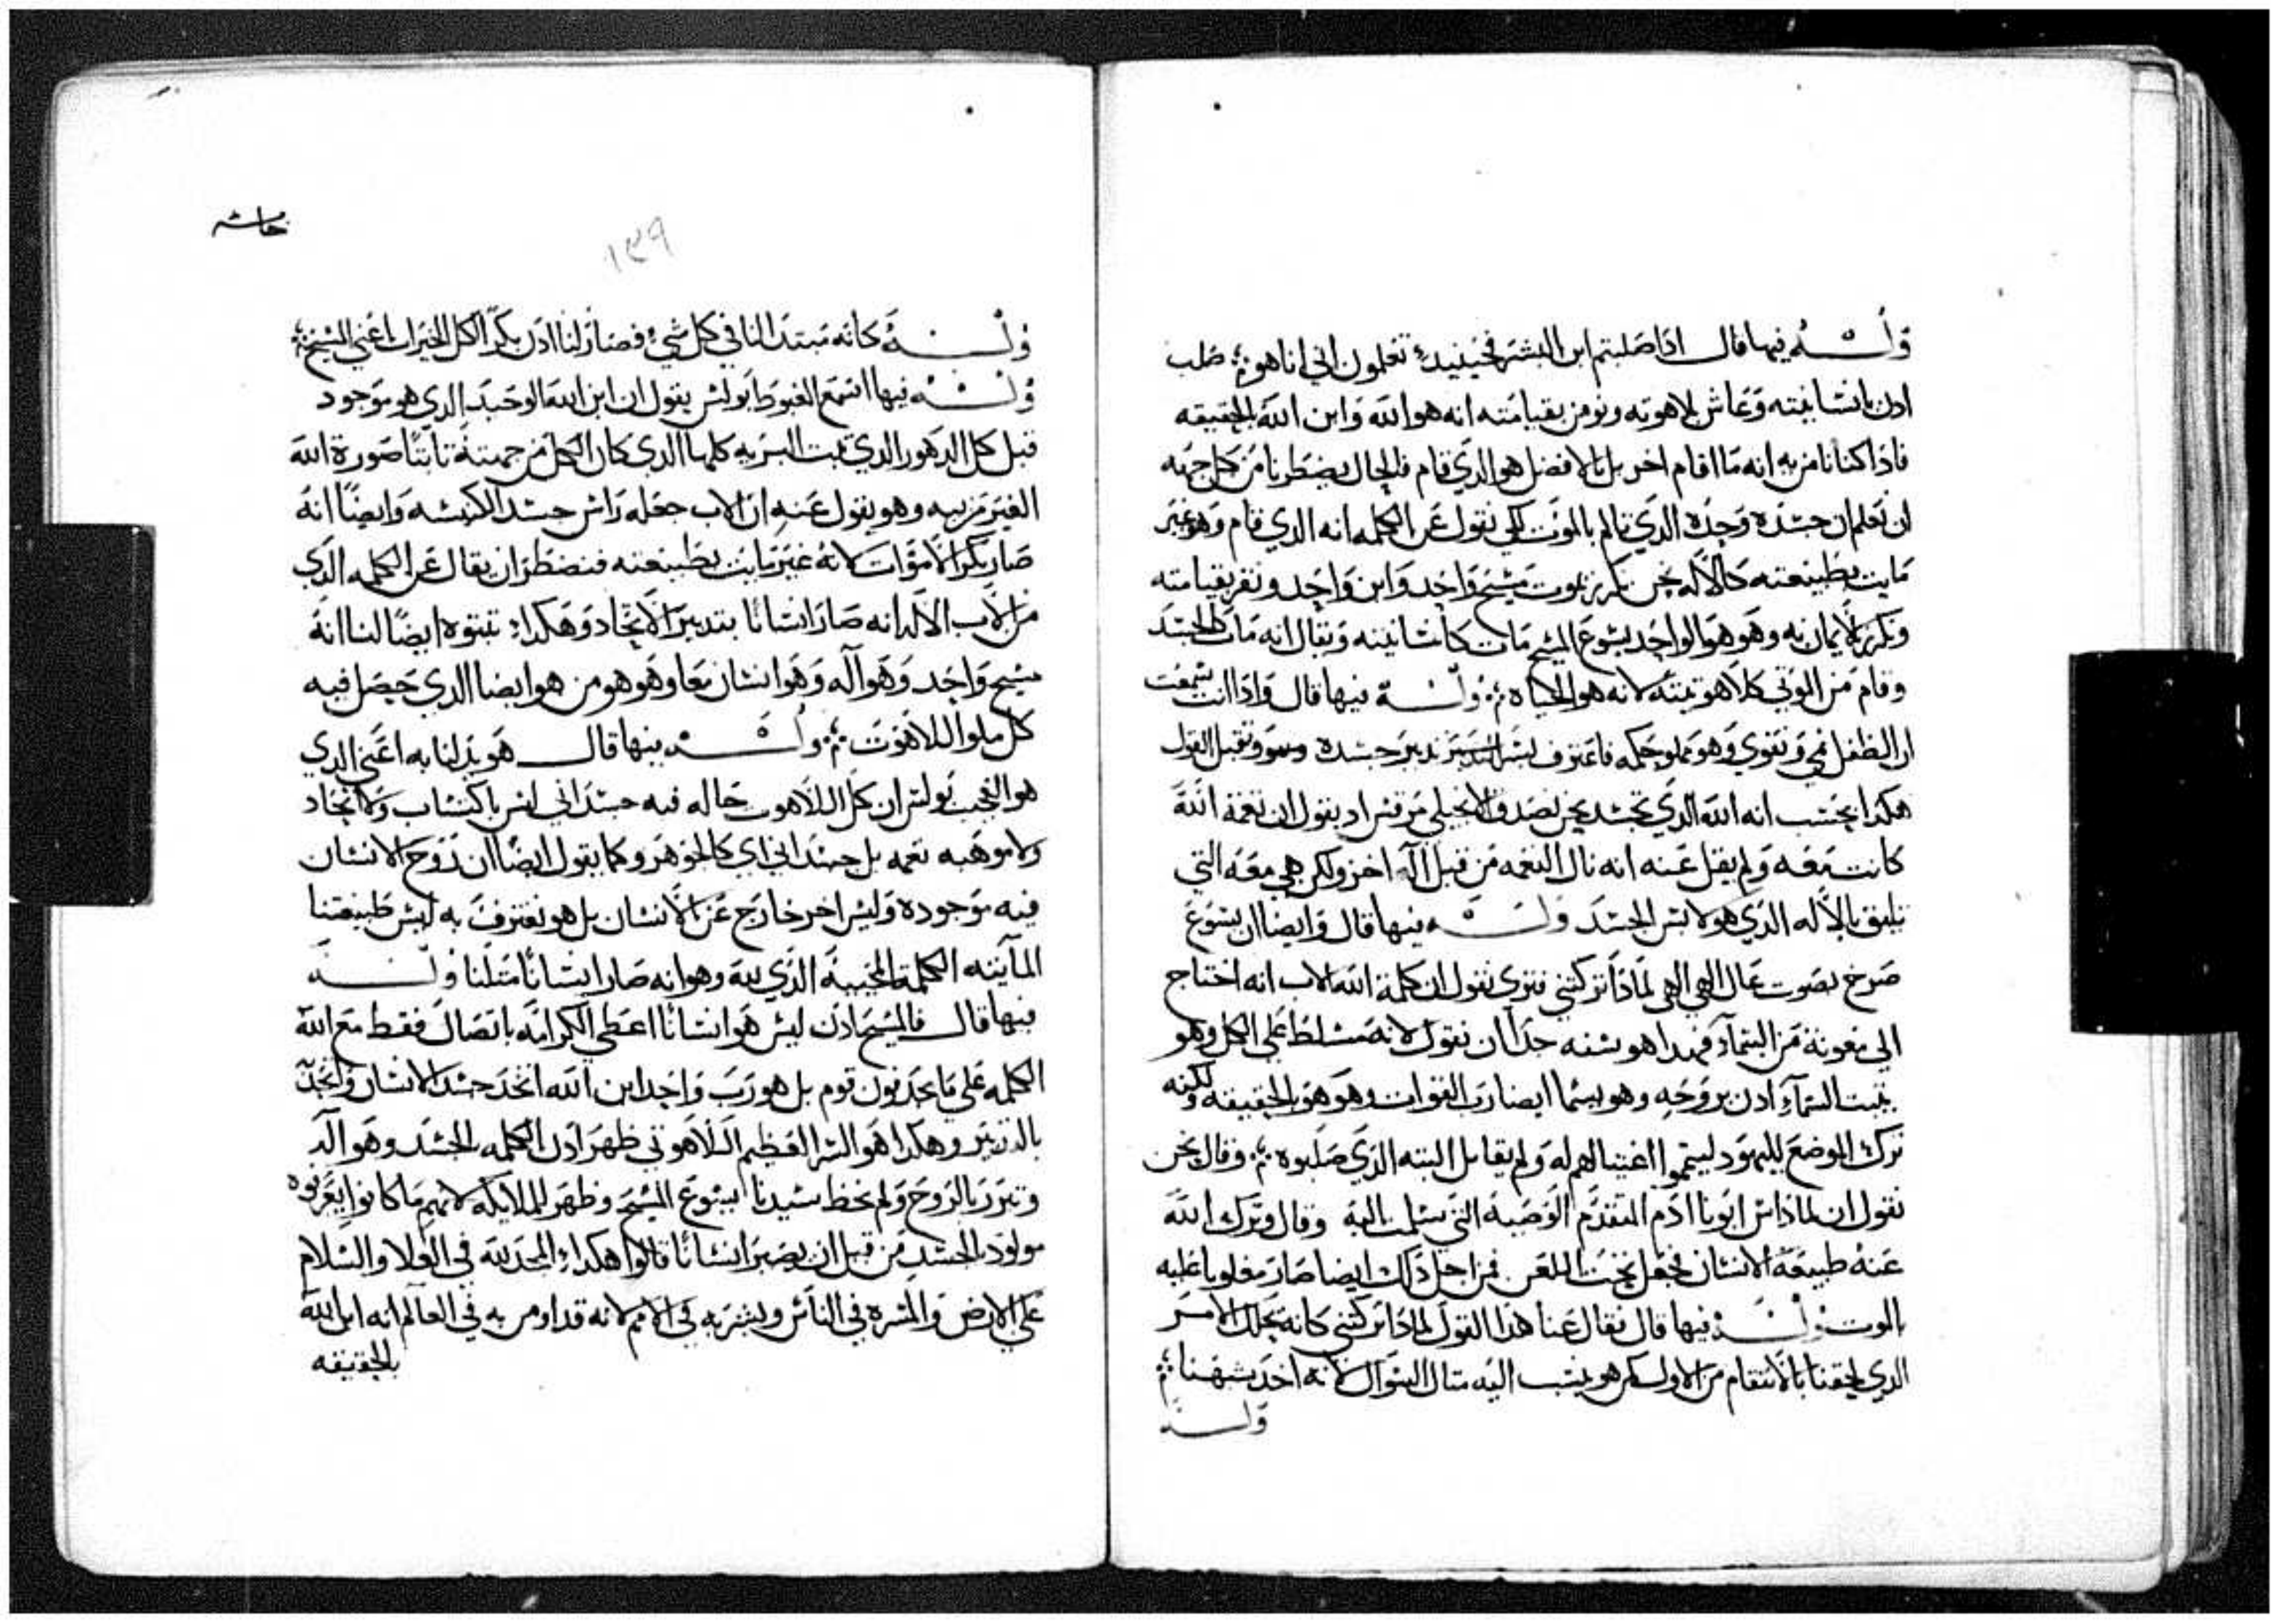 وله فيها قال اذا صلبتم ابن البشر فحينيد تعلمون اني انا هو صلب
ادن بانسانيته وعاش بلاهوته ونومن بقيامته انه هو الله وابن الله بالحقيقه
فاذا كنا نامن به انه ما اقام اخر بل بالافضل هو الذي قام فالحال يضطرنا من كل جهه
ان نعلم ان جسده وحده الذي تالم بالموت لكي نقول عن الكلمه انه الذي قام وهو غير
مايت بطبيعته كالاله نحن نكرز بموت مسيح واحد وابن واحد ونقر بقيامته
ونكرز بالايمان به وهو هو الواحد يسوع المسيح مات كانسانيته ويقال انه مات بالجسد
وقام من الموتي كلاهوتيته لانه هو الحياه وله فيها قال واذا انت سمعت
ان الطفل نمي وتقوي وهو مملو حكمه فاعترف بسر التدبير تدبير جسده وسوف تقبل القول
هكذا يحتسب انه الله الذي تجسد نحن نصدق الانجيلي مرقس اد يقول ان نعمة الله
كانت معه ولم يقل عنه انه نال النعمه من قبل اله اخر ولكن هي معه التي
تليق بالاله الذي هو لابس الجسد وله فيها قال وايضا ان يسوع
صرخ بصوت عال الهي الهي لماذا تركتني فتري نقول ان كلمة الله الاب انه احتاج
الي معونة من السماء فهذا هو سفه جدا ان نقول لانه متسلط علي الكل وهو
يثبت السماء ادن بروحه وهو يسما ايضا رب القوات وهو هو بالحقيقه ولكنه
ترك الموضع لليهود ليتمموا اغتيالهم له ولم يقابل البته الذي صلبوه وقال نحن
نقول ان لما داس ابونا ادم المتقدم الوصيه التي سلمت اليه وقال وترك الله
عنه طبيعة الانسان فجعل تحت اللعن فمن اجل ذلك ايضا صار مغلوبا عليه
بالموت وله فيها قال فقال عنا هذا القول لماذا تركتني كانه يحل الامر
الذي لحقنا بالانتقام من الاول لكن هو ينسب اليه مثال السوال لانه اخذ شبهنا
وله
حاشيه
١٣٩
وله كانه مبتدا لنا في كل شي فصار لنا ادن بكرا لكل الخيرات اعني المسيح
وله فيها اسمع المغبوط بولس يقول ان ابن الله الوحيد الدي هو موجود
قبل كل الدهور الدي تبت البريه كلها الدي كان الكل من جهته ثابتا صورة الله
الغير مرييه وهو يقول عنه ان الاب جعله راس جسد الكنيسه وايضا انه
صار بكر الاموات لانه غير مايت بطبيعته فنضطر ان يقال عن الكلمه الدي
من الاب الاله انه صار انسانا بتدبير الاتحاد وهكدا تبتوه ايضا لنا انه
مسيح واحد وهو اله وهو انسان معا وهو هو من هو ايضا الدي حصل فيه
كل ملوا اللاهوت وله فيها قال هو بدلنا به اعني الدي
هو العجب بولس ان كل اللاهوت حاله فيه جسداني ليس باكتساب ولا اتحاد
ولا موهبه نعمه بل جسداني اي كالجوهر وكما يقول ايضا ان روح الانسان
فيه موجوده وليس اخر خارج عن الانسان بل هو نعترف به لبس طبيعتنا
المايته الكلمة المحييه الذي لله وهو انه صار انسانا مثلنا وله
فيها قال فالمسيح ادن ليس هو انسانا اعطي الكرامه باتصال فقط مع الله
الكلمه علي ما يحدفون قوم بل هو رب واحد ابن الله اتخد جسد الانسان واتحد
بالتدبير وهكدا هو السر العظيم اللاهوتي ظهر ادن الكلمه بالجسد وهو اله
وتبرر بالروح ولم نحظ سيدنا ايسوع المسيح وظهر للملايكه لانهم ما كانوا يعرفوه
مولود بالجسد من قبل ان يصير انسانا قالوا هكداء المجد لله في العلا والسلام
علي الارض والمسره في الناس وبشر به في الامم لانه قد اومن به في العالم انه ابن الله
بالحقيقه